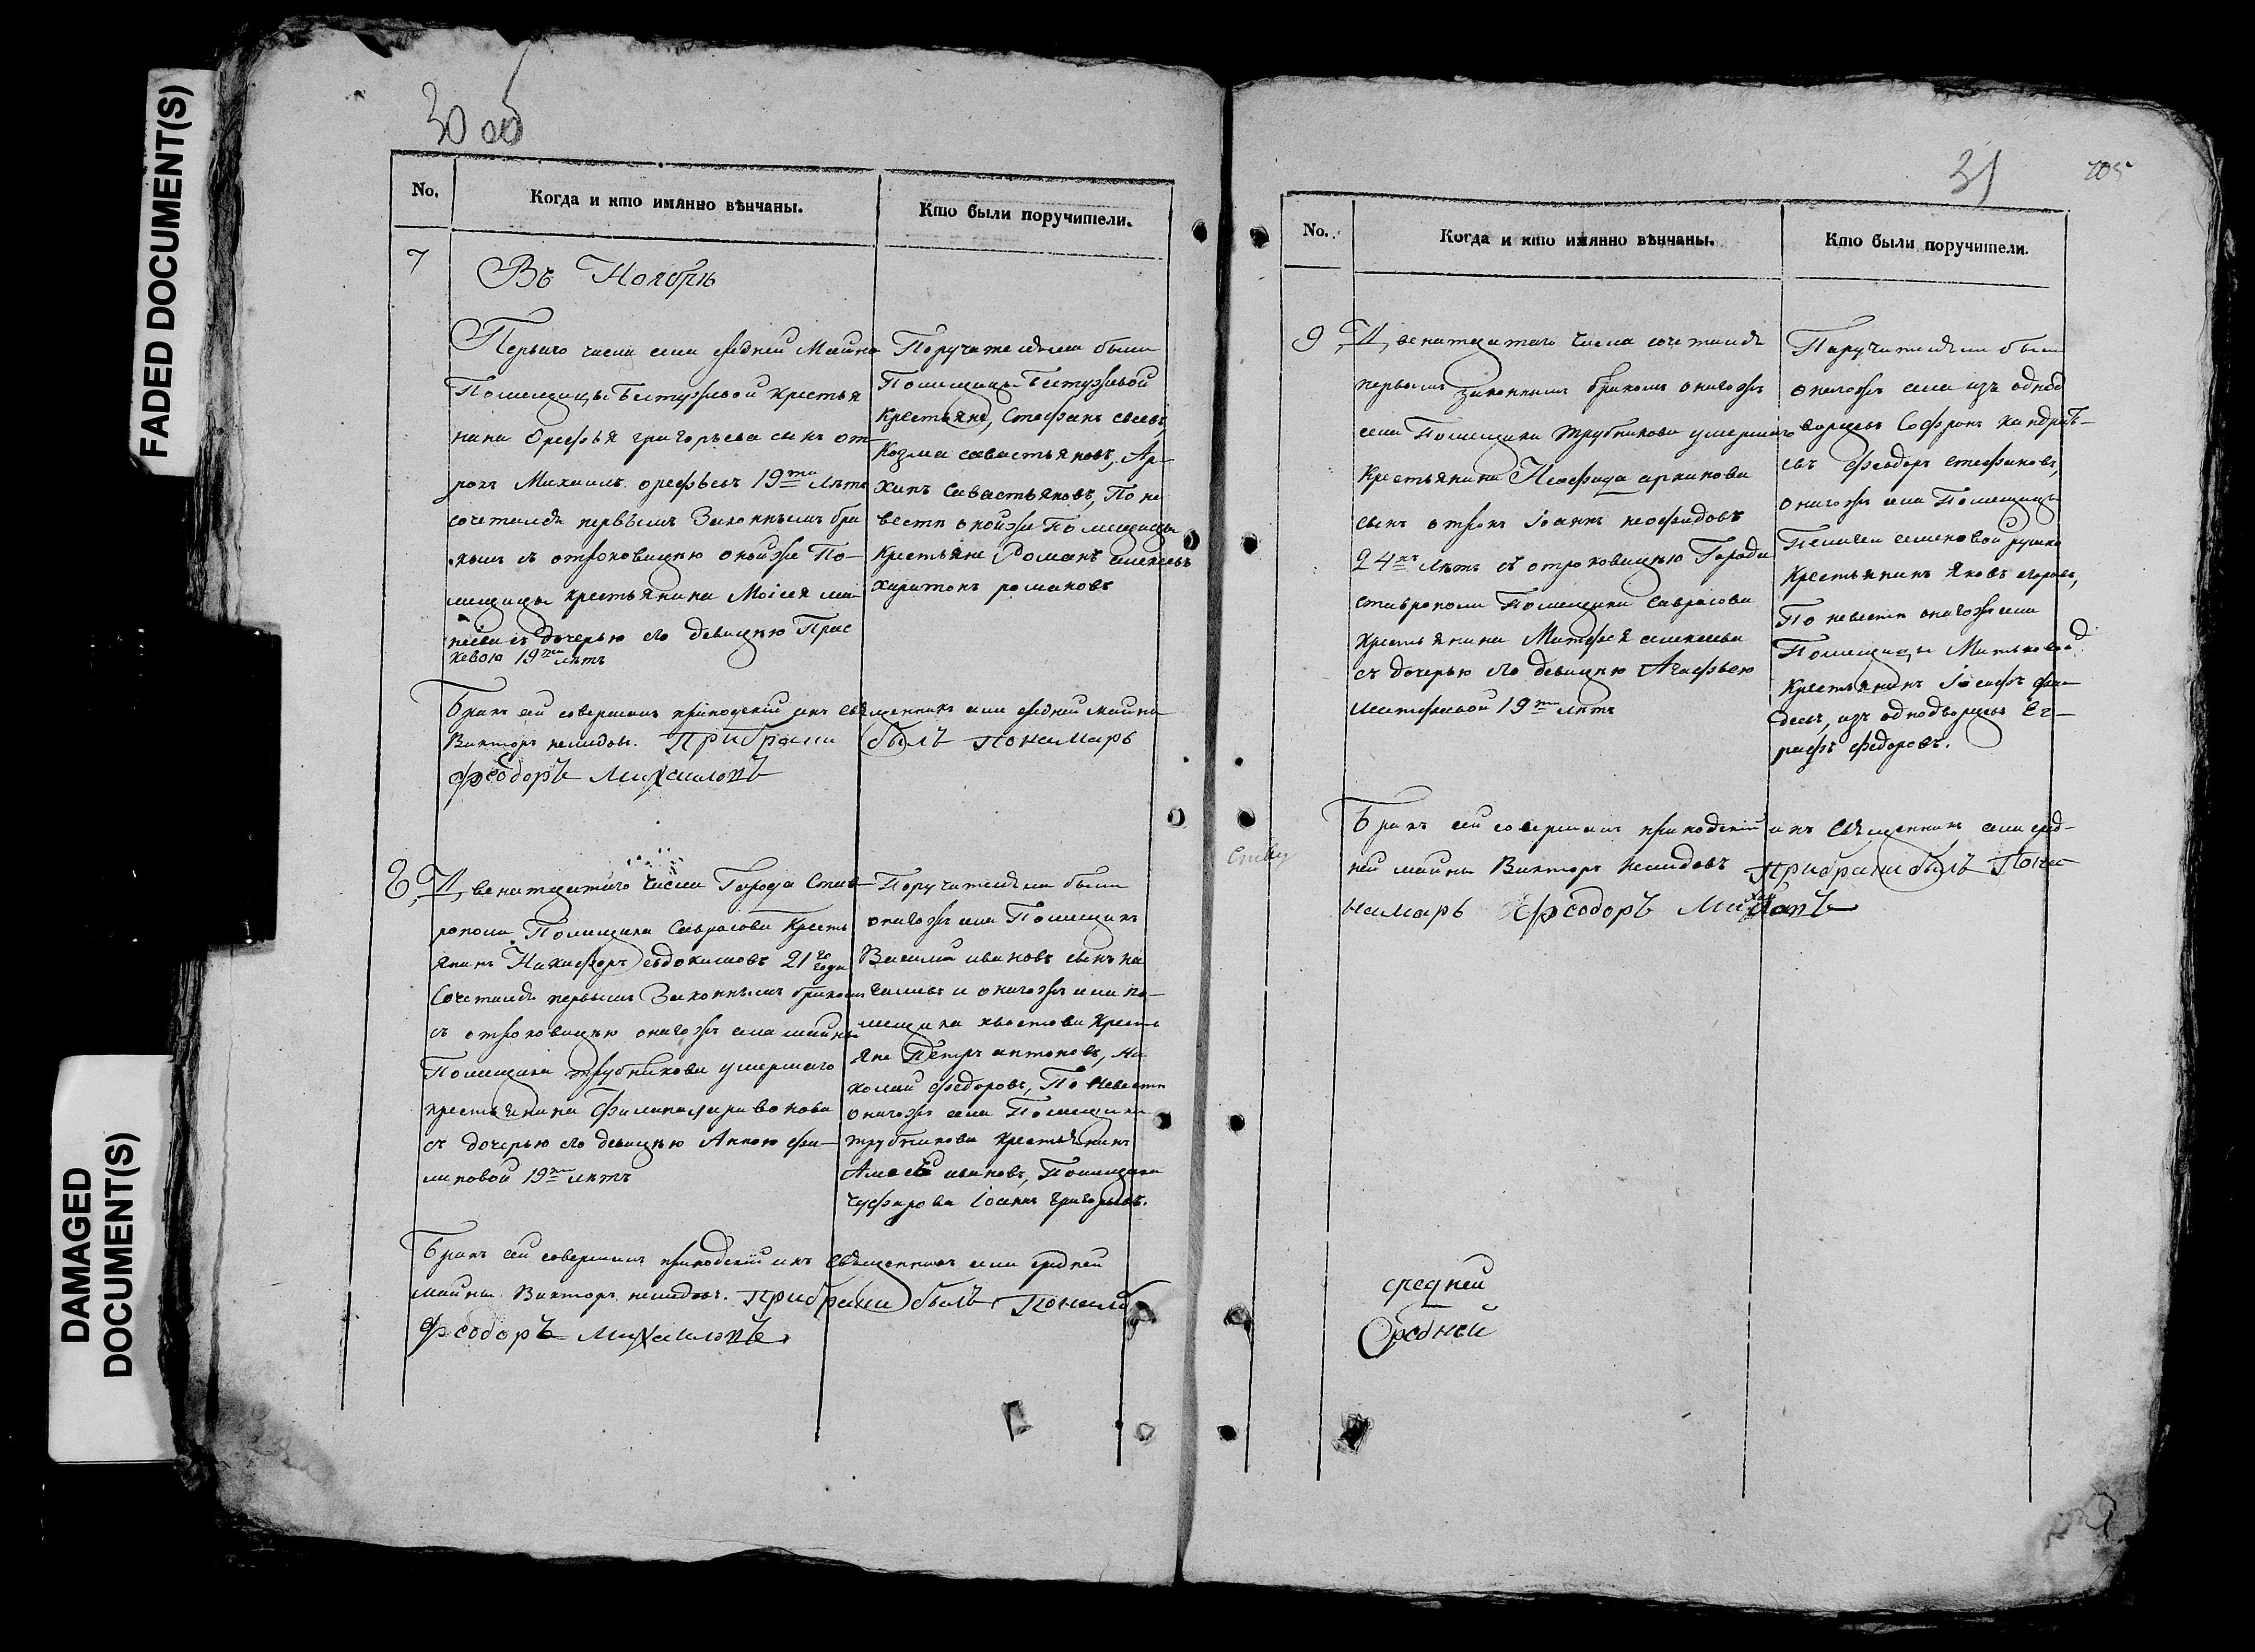 FADED DOCUMENT(S)
DAMAGED
DOCUMENT(S)
30 об
No.
Когда и кто имянно вѣнчаны.
Кто были поручители.
7
Въ Ноябрѣ
Перваго числа села средней Майны
Помещицы Бестужевой крестья
нина Орефья григорьева сынъ от
рокъ Михаилъ орефьевъ 19ти лѣтъ
сочетался первымъ Законнымъ бра
комъ съ отроковицею оной же По-
мещицы крестьянина Моісея
съ дочерью его девицею Прас
кевою 19ти лѣтъ
Поручателями были
Помещицы Бестужевой
Крестьяне, Стефанъ
Козма савастьяновъ, Ар-
хипъ Савастьяновъ, По не
весте оной же Помещицы
Крестьяне Романъ алексеевъ
харитонъ романовъ
Бракъ сей совершалъ приходский ихъ священникъ села средней майны
Викторъ немидовъ. При браки былъ понамарь
Феодоръ Михаиловъ
8,
Двенатцатаго числа Города Став-
рополя Помещика Саврасова Кресть
янинъ Никифоръ евдокимовъ 21го года
Сочетался первымъ Законнымъ бракомъ
съ отроковицею онаго жъ села майны
Помещика трубникова умершаго
крестьянина Филипа
съ дочерью его девицею Анною фи-
липовой 19ти лѣтъ
Поручателями были
онаго жъ села Помещикъ
Василий ивановъ сынъ
и онаго жъ села по-
мещика хвостова Кресть
яне Петръ антоновъ, Ни
колай федоровъ, По невесте
онаго жъ села Помещика
трубникова крестьянинъ
ивановъ, Помещика
Чуфарова Іоаннъ григорьевъ.
Бракъ сей совершалъ приходский ихъ Священникъ села средней
майны Викторъ немидовъ. При браки былъ Понама
Феодоръ Михаиловъ
31
205
No.
Когда и кто имянно вѣнчаны.
Кто были поручители.
9,
Двенатцатаго числа сочетался
первымъ законнымъ бракомъ онаго жъ
села Помещика Трубникова умершаго
Крестьянина Неофида архипова
сынъ отрокъ Іоаннъ неофидовъ
24хъ лѣтъ съ отроковицею Города
ставрополя Помещика саврасова
крестьянина Матфея алексеева
съ дочерью его девицею Агафьею
матфеевой 19ти лѣтъ
Паручителями были
онаго жъ села изъ однод
ворцевъ Софронъ кандрать-
евъ феодоръ стефановъ,
онаго жъ села Помещицы
Крестьянинъ Яковъ егоровъ,
По невесте онаго жъ села
Помещицы Мильковой
Крестьянинъ Іосифъ фад-
деевъ, изъ однодворцевъ Ев-
графъ федоровъ.
Бракъ сей совершалъ приходский ихъ Священникъ села сред-
ней майны Викторъ Немидовъ При браки былъ Пона-
намарь Феодоръ Михайловъ
средней
Средней